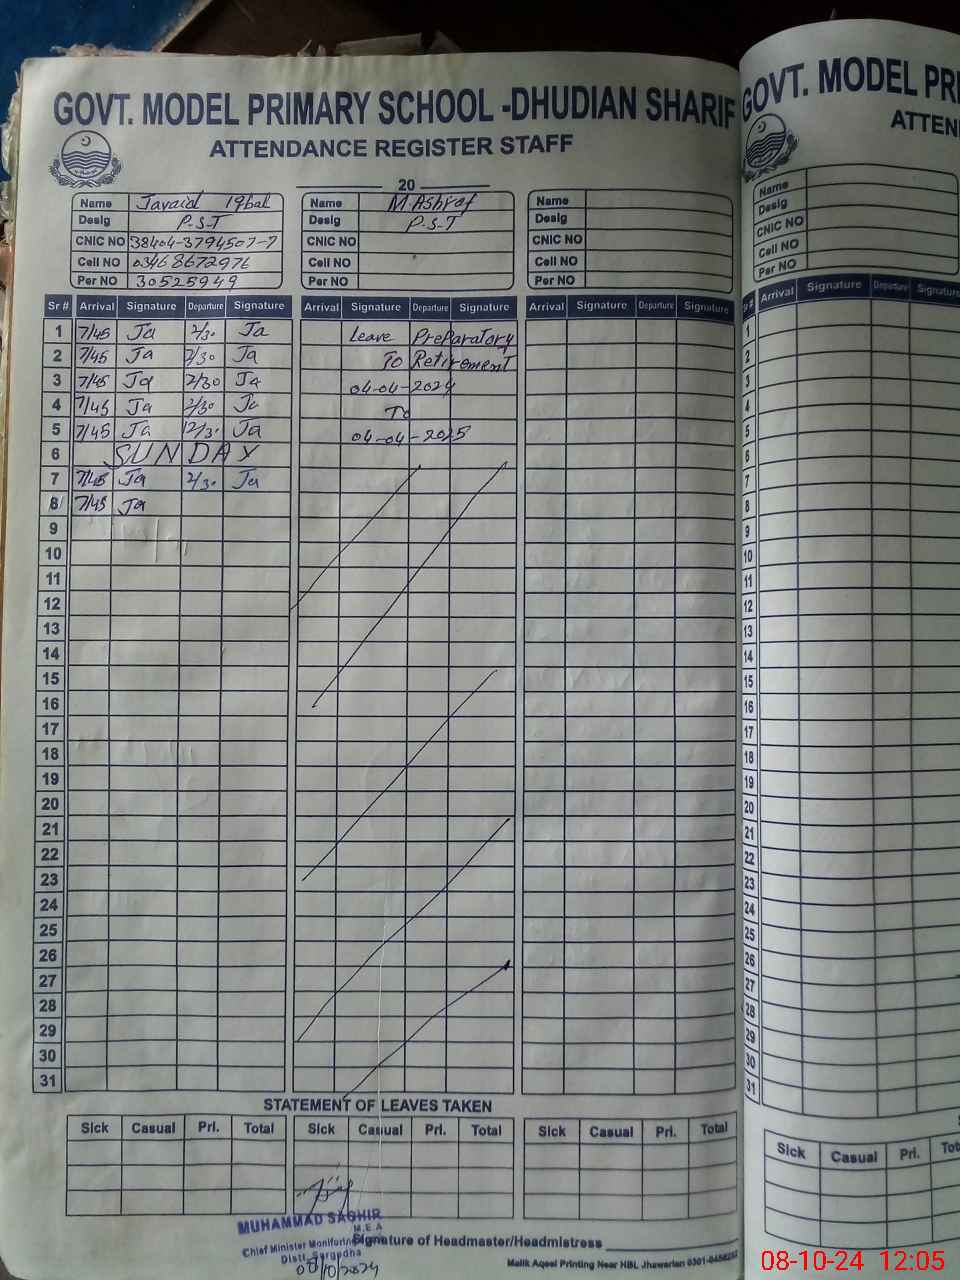 GOVT. MODEL PRIMARY SCHOOL -DHUDIAN SHARIF
ATTENDANCE REGISTER STAFF
20
Name Javaid Iqbal
Desig P.S.T
CNIC NO 38404-3794507-7
Cell NO 03468672976
Per NO 30525949
Name M.Ashraf
Desig P.S.T
CNIC NO
Cell NO
Per NO
Name
Desig
CNIC NO
Cell NO
Per NO
Sr # Arrival Signature Departure Signature Arrival Signature Departure Signature Arrival Signature Departure Signature
1 7/45 Ja 2/30 Ja Leave Preparatory
2 7/45 Ja 2/30 Ja To Retirement
3 7/45 Ja 2/30 Ja 04-04-2024
4 7/45 Ja 2/30 Ja To
5 7/45 Ja 12/3. Ja 04-04-2025
6 SUNDAY
7 7/45 Ja 2/30 Ja
8 7/45 Ja
9
10
11
12
13
14
15
16
17
18
19
20
21
22
23
24
25
26
27
28
29
30
31
STATEMENT OF LEAVES TAKEN
Sick Casual Pri. Total Sick Casual Pri. Total Sick Casual Pri. Total
MUHAMMAD SAGHIR
M.E.A
Chief Minister Monitoring
Distt. Sargodha
08/10/2024
Signature of Headmaster/Headmistress
Malik Aqeel Printing Near HBL Jhawarian
GOVT. MODEL PRI
ATTEN
Name
Desig
CNIC NO
Cell NO
Per NO
Arrival Signature Departure Signature
1
2
3
4
5
6
7
8
9
10
11
12
13
14
15
16
17
18
19
20
21
22
23
24
25
26
27
28
29
30
31
Sick Casual Pri. Tot
08-10-24 12:05